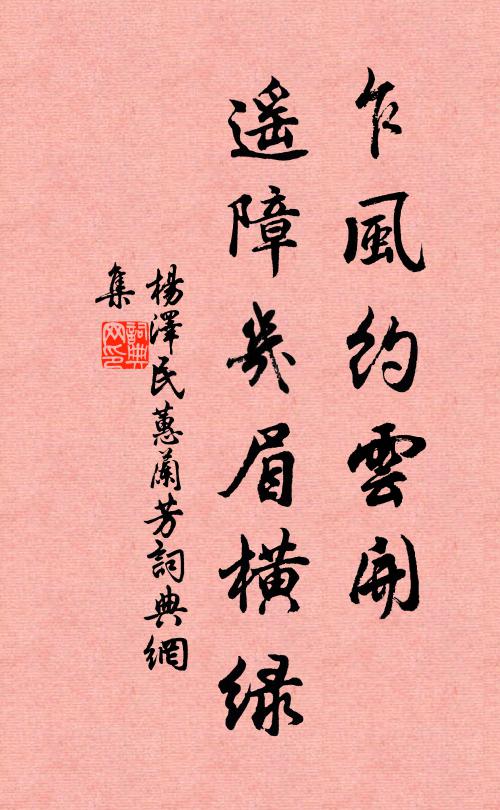 乍風約雲開
遥障幾眉橫緑
楊澤民蕙蘭芳詞典網
集
詞典網印